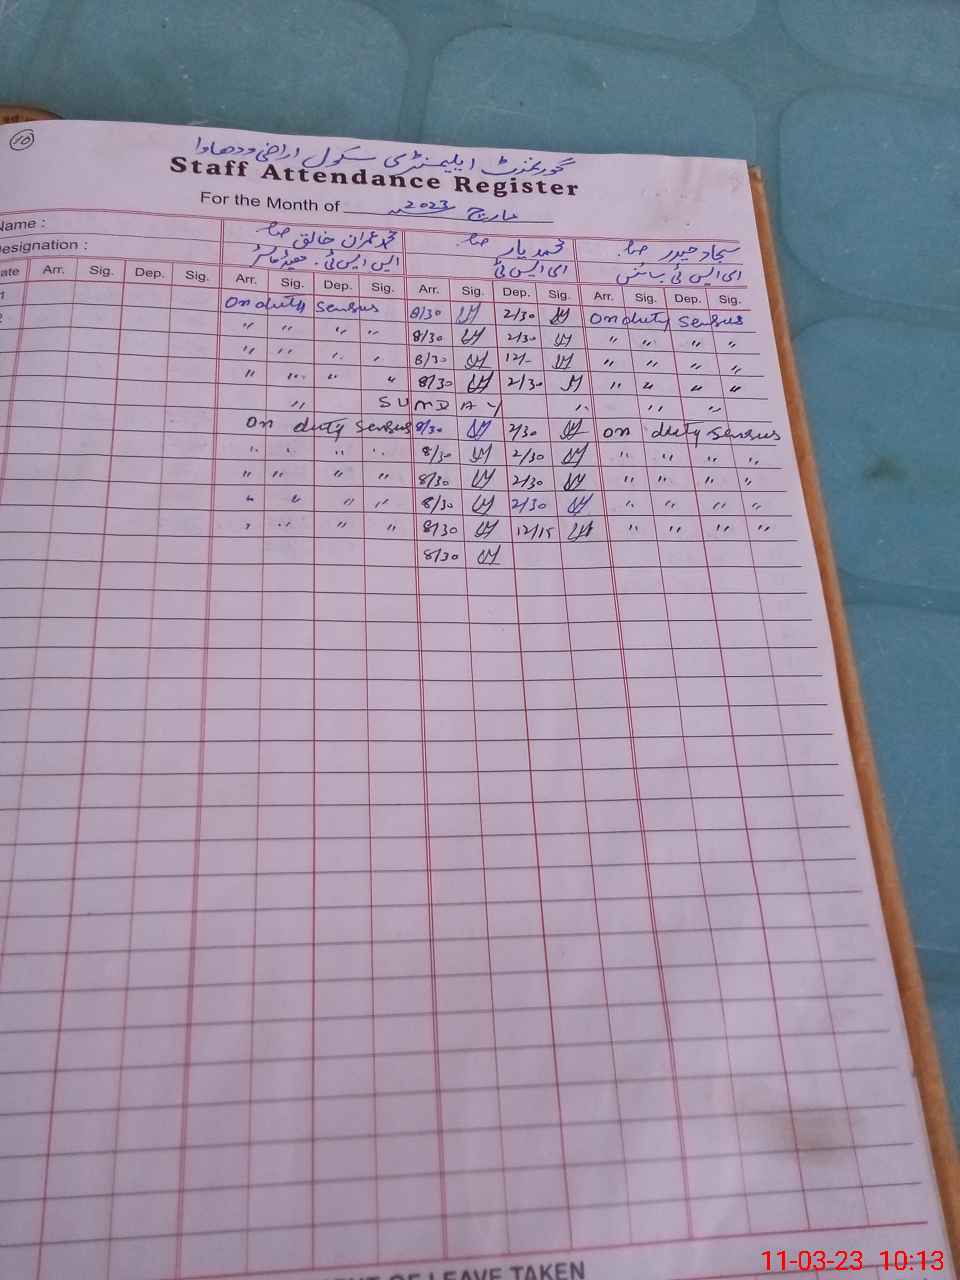 10
گورنمنٹ ایلیمنٹری سکول اراضی ودھاوا
Staff Attendance Register
For the Month of مارچ 2023
Name : محمد عمران خالق صاحب محمد یار صاحب سجاد حیدر صاحب
Designation : ایس ایس ٹی۔ ای ایس ٹی ای ایس ٹی سائنس
ate Arr. Sig. Dep. Sig. Arr. Sig. Dep. Sig. Arr. Sig. Dep. Sig. Arr. Sig. Dep. Sig.
1 On duty Sensus 8/30 2/30 On duty Sensus
2 " " " " 8/30 2/30 " " " "
" " " " 8/30 12/- " " " "
" " " " 8/30 2/30 " " " "
" SUNDAY " " "
On duty Sensus 8/30 2/30 On duty Sensus
" " " " 8/30 2/30 " " " "
" " " " 8/30 2/30 " " " "
" " " " 8/30 2/30 " " " "
" " " " 8/30 12/15 " " " "
8/30
OF LEAVE TAKEN
11-03-23 10:13